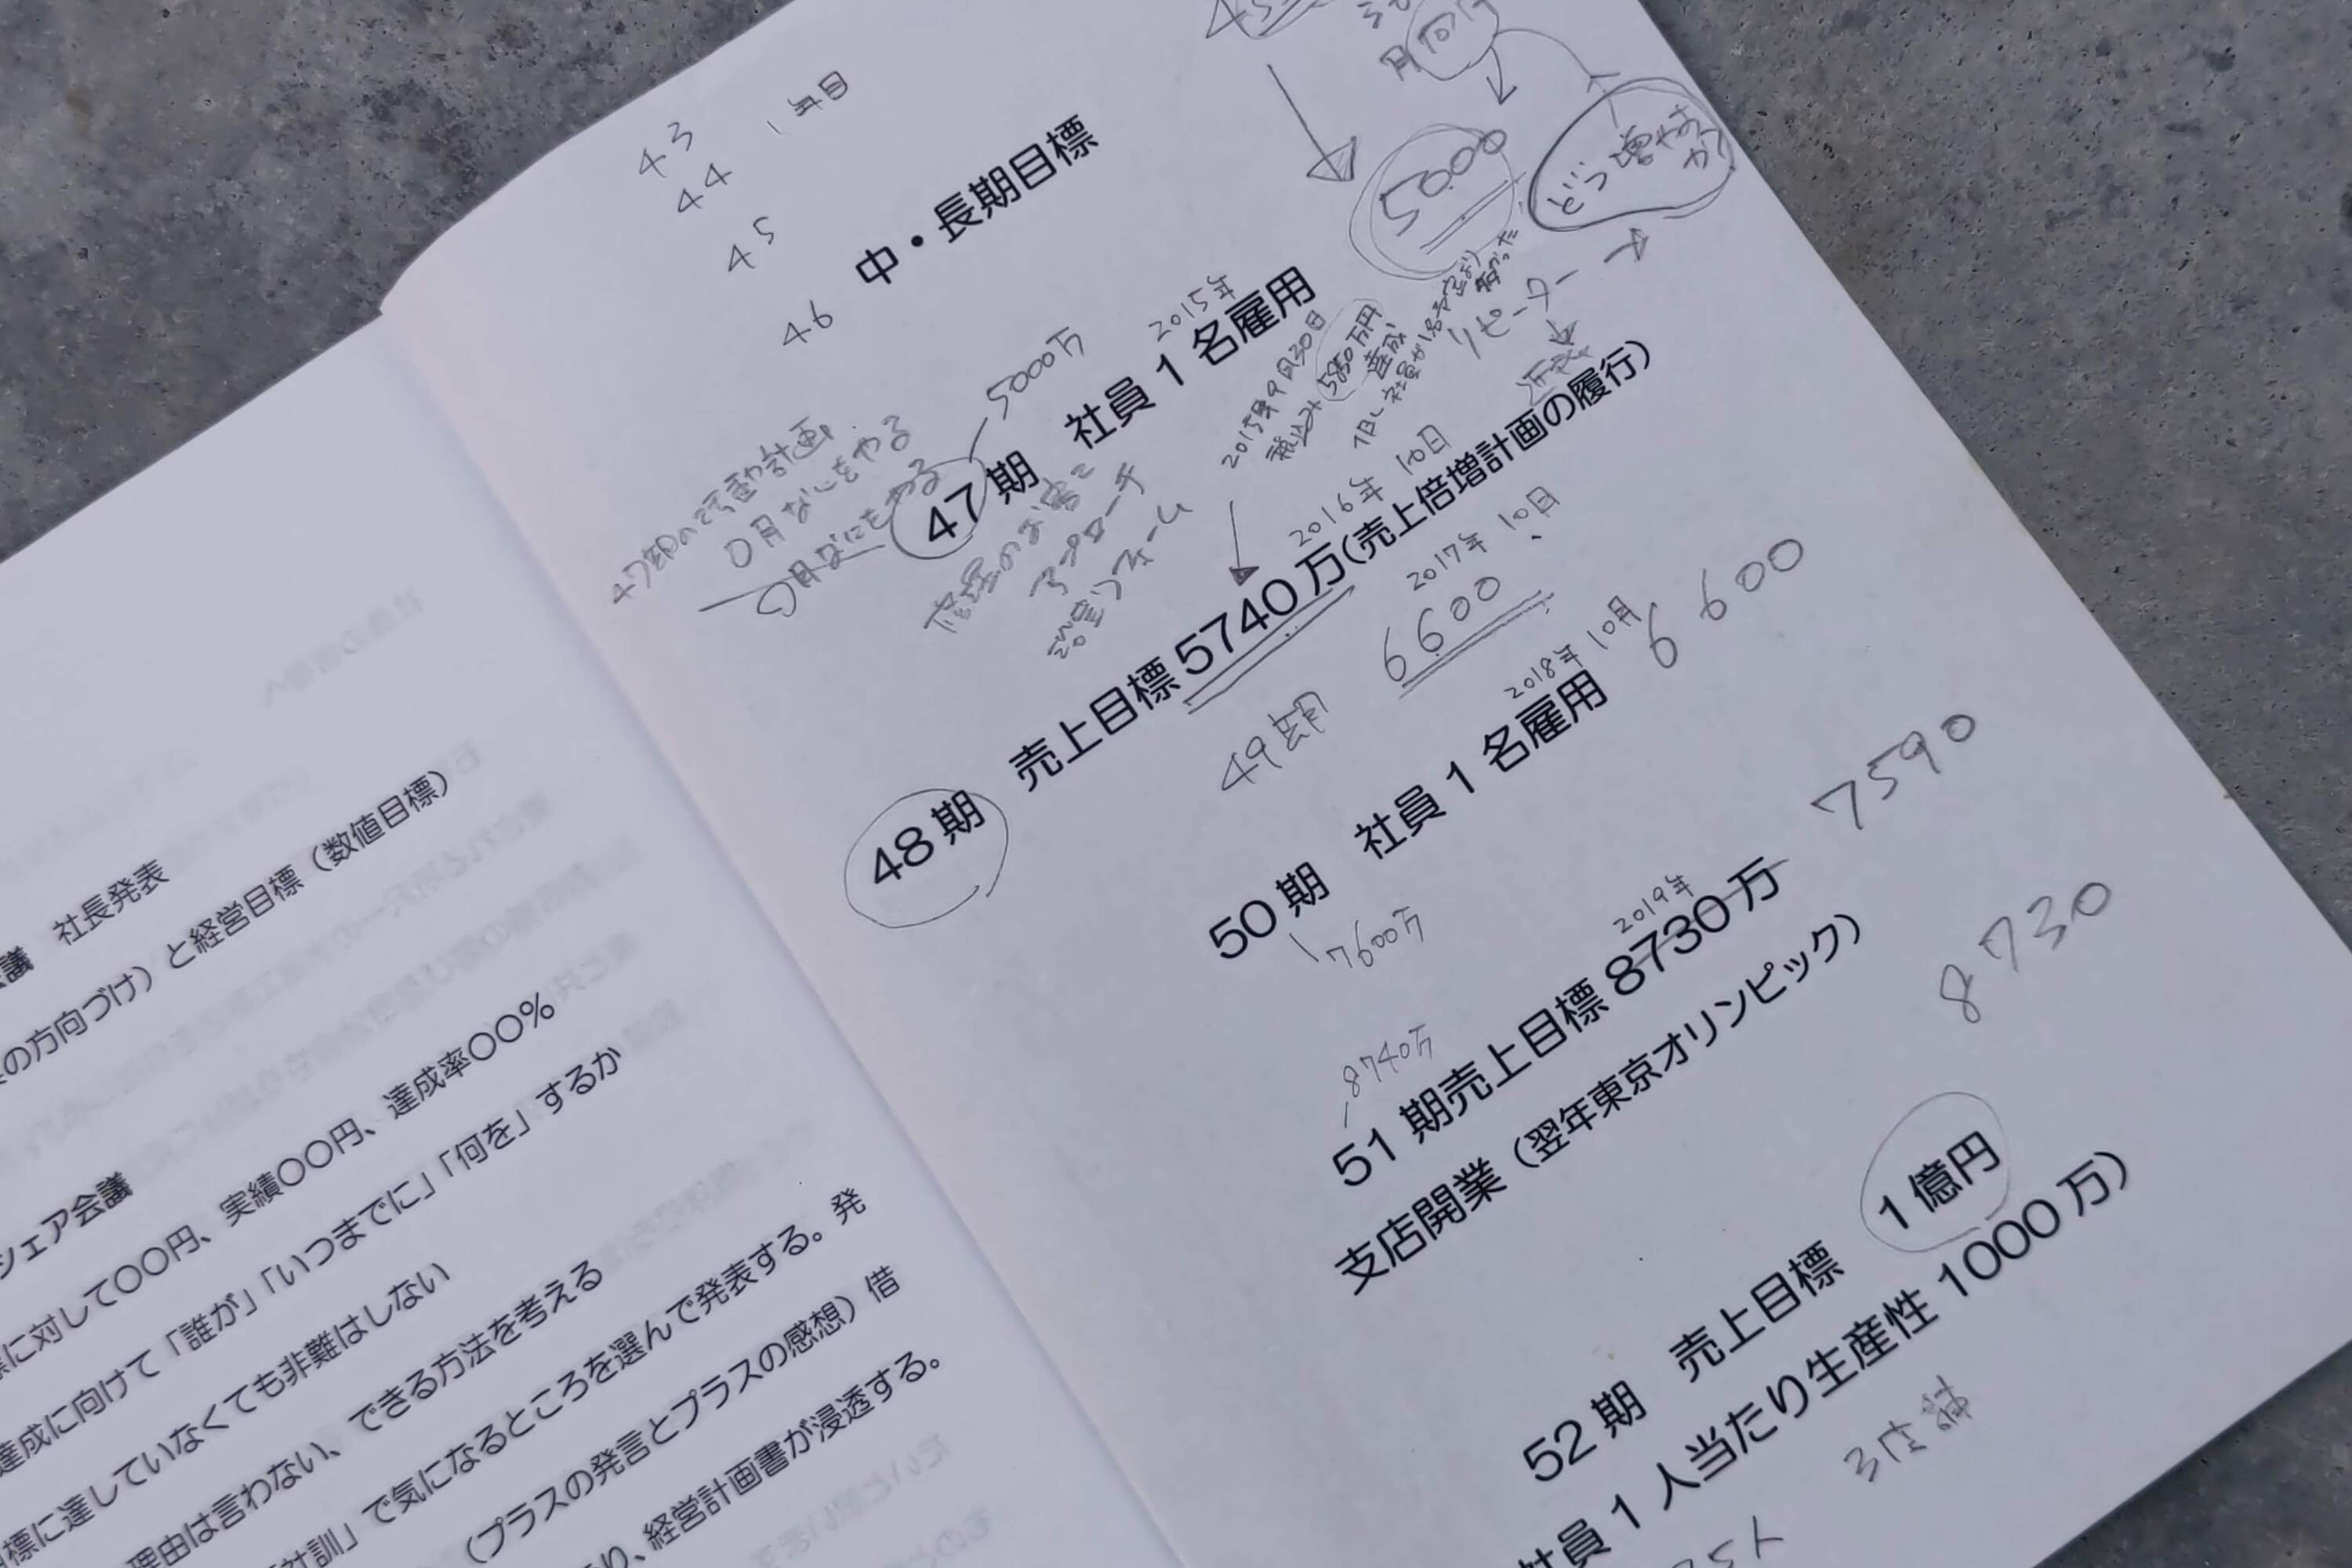 社長発表
の方向づけ）と経営目標（数値目標）
シェア会議
に対して〇〇円、実績〇〇円、達成率〇〇%
達成に向けて「誰が」「いつまでに」「何を」するか
目標に達していなくても非難はしない
理由は言わない、できる方法を考える
」で気になるところを選んで発表する。発
（プラスの発言とプラスの感想）借
り、経営計画書が浸透する。
43
44 1年目
45
46
中・長期目標
月
5000
どう増やすか
リピーター
2015年
5000万
47期 社員1名雇用
2015年9月30日
税込み5850万円
達成
47期の行動計画
〇月なにをやる
〇月なにをやる
アプローチ
2016年10月
48期 売上目標5740万（売上倍増計画の履行）
2017年10月
49期 6600
2018年10月
6600
50期 社員1名雇用
7600万
7590
2019年
8740万
51期売上目標8730万
8730
支店開業（翌年東京オリンピック）
52期 売上目標 1億円
社員1人当たり生産性1000万）
3店舗